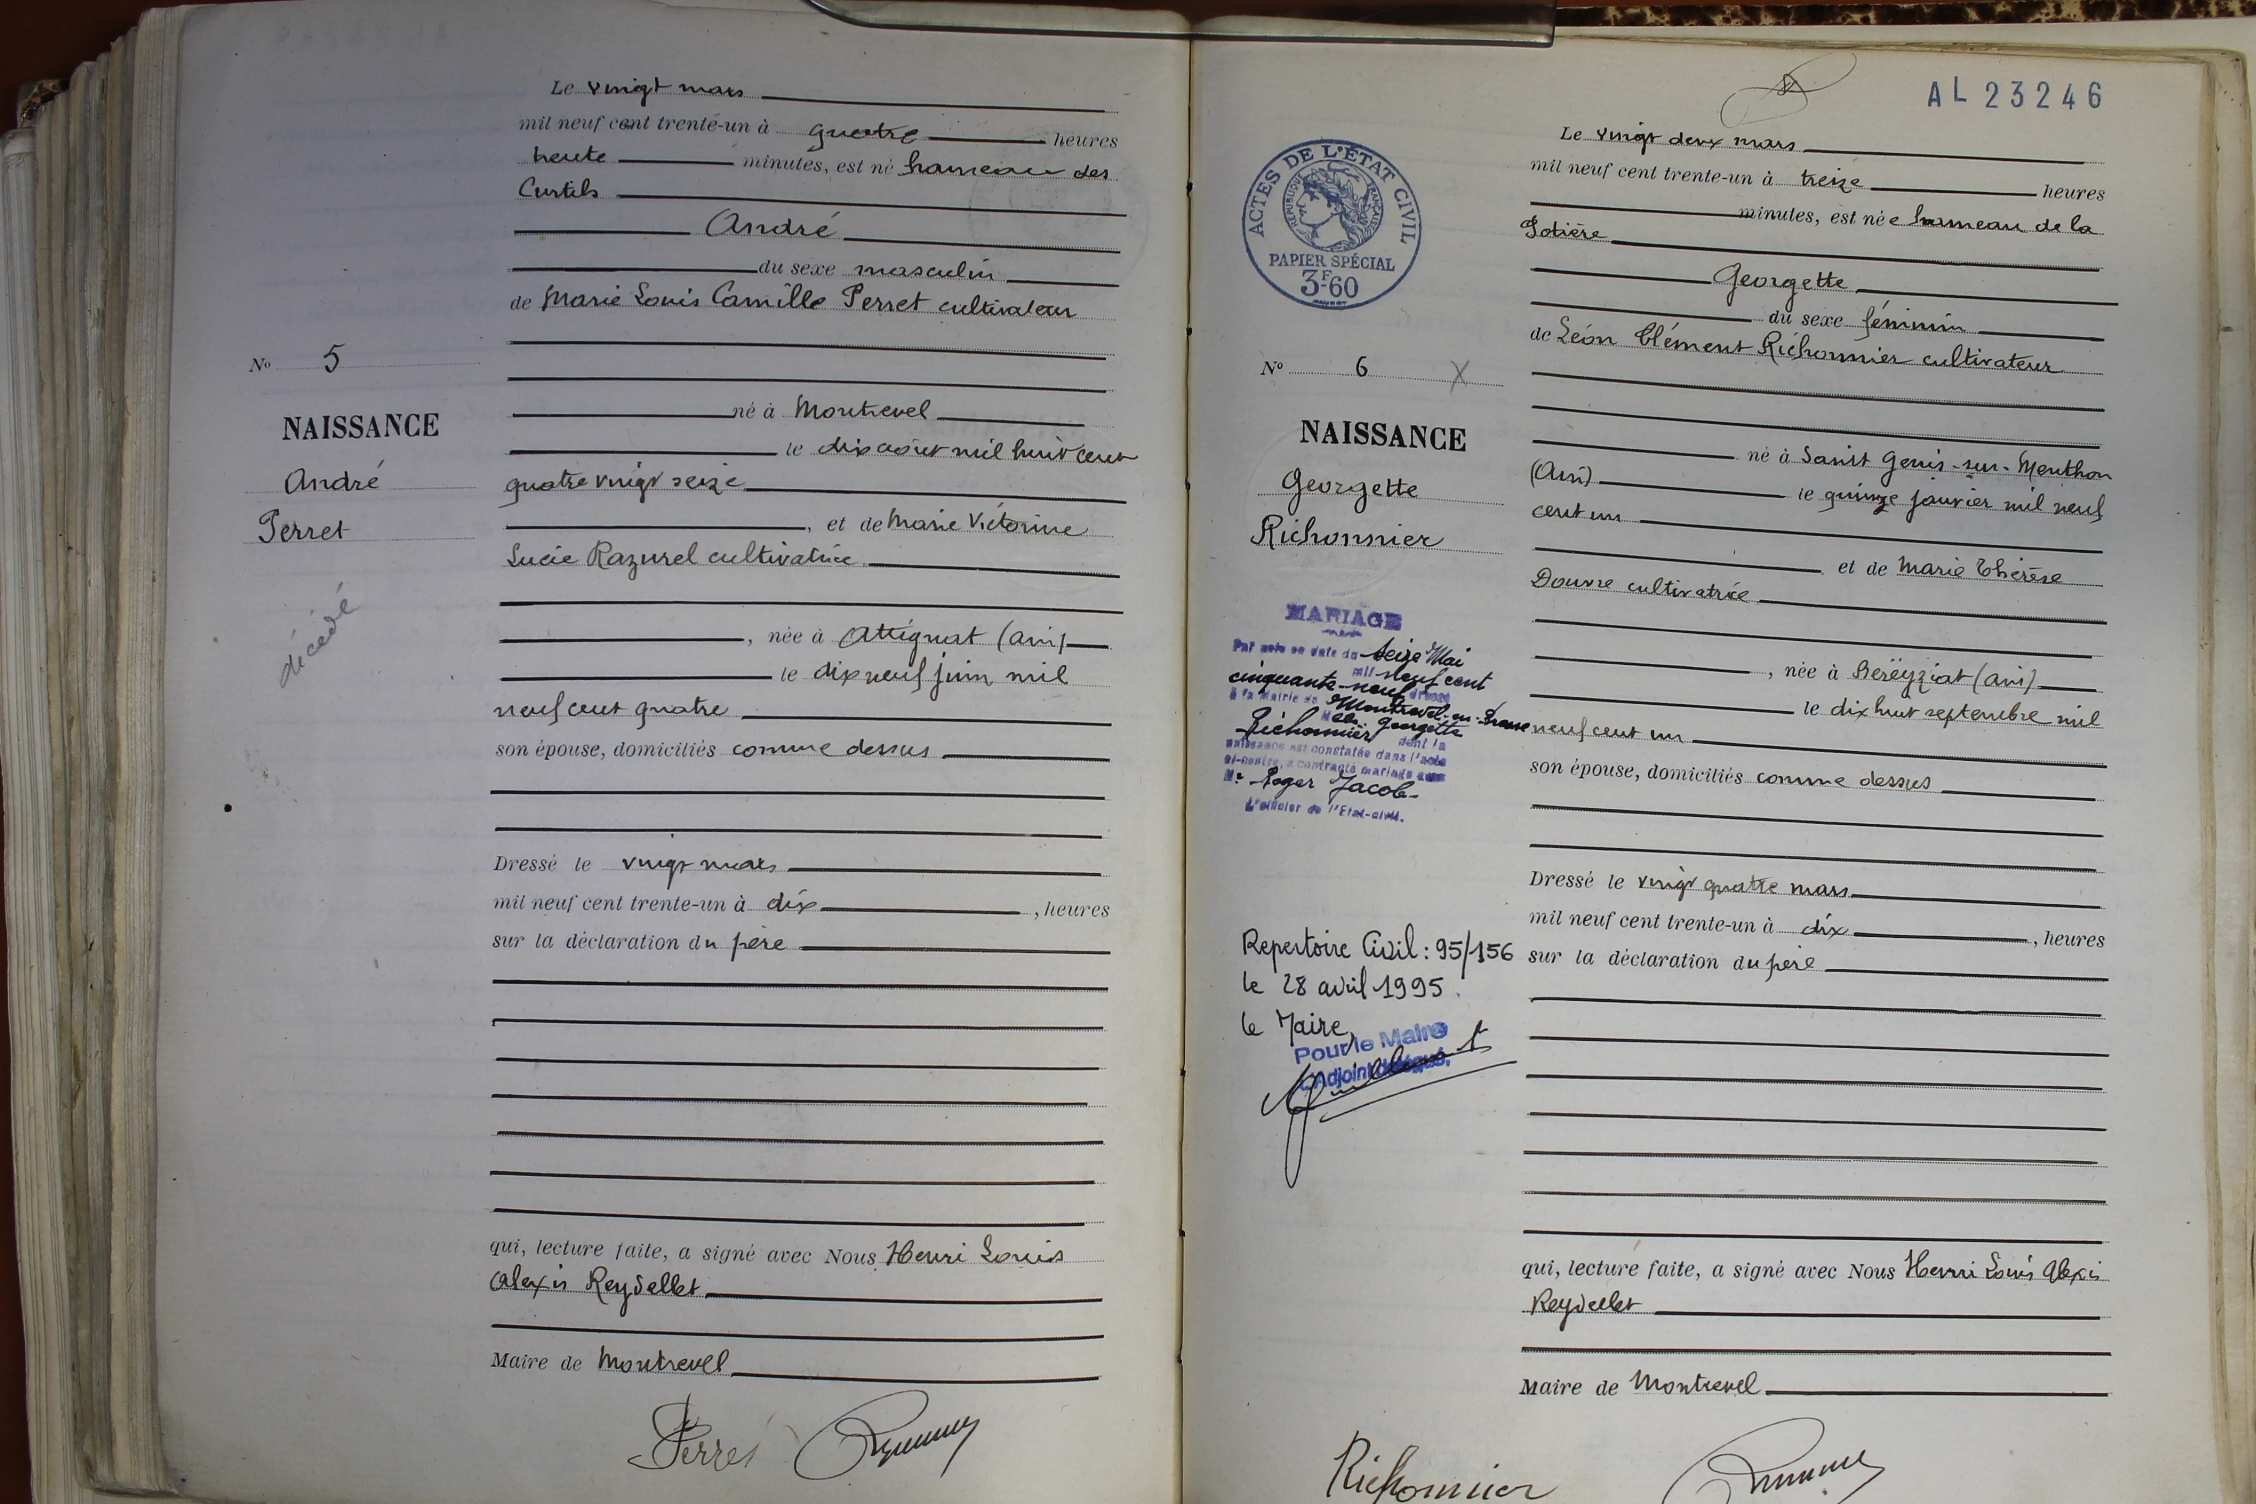 Le vingt mars
mil neuf cent trente-un à quatre heures
trente minutes, est né hameau des
Curtils
André
du sexe masculin
de Marie Louis Camille Perret cultivateur
né à Montrevel
le dix août mil huit cent
quatre vingt seize
, et de Marie Victorine
Lucie Razurel cultivatrice
, née à Attignat (Ain)
le dix neuf juin mil
neuf cent quatre
son épouse, domiciliés comme dessus
Dressé le vingt mars
mil neuf cent trente-un à dix , heures
sur la déclaration du père
qui, lecture faite, a signé avec Nous Henri Louis
Alexis Reydellet
Maire de Montrevel
Perret
No 5
NAISSANCE
André
Perret
décédé
AL 23246
ACTES DE L'ÉTAT CIVIL
RÉPUBLIQUE FRANÇAISE
PAPIER SPÉCIAL
3F.60
No 6 X
NAISSANCE
Georgette
Richonnier
MARIAGE
Par acte en date du seize Mai
mil neuf cent
cinquante-neuf dressé
à la Mairie de Montrevel-en-Bresse
Melle Georgette
Richonnier dont la
naissance est constatée dans l'acte
ci-contre, a contracté mariage avec
Mr Roger Jacob
L'officier de l'Etat-civil.
Repertoire Civil : 95/156
le 28 avril 1995.
le Maire,
Pour le Maire
L'Adjoint délégué,
Le vingt deux mars
mil neuf cent trente-un à treize heures
minutes, est née hameau de la
Jotière
Georgette
du sexe féminin
de Léon Clément Richonnier cultivateur
né à Saint Genis-sur-Menthon
(Ain) le quinze janvier mil neuf
cent un
et de Marie Thérèse
Douvre cultivatrice
, née à Béreyziat (Ain)
le dix huit septembre mil
neuf cent un
son épouse, domiciliés comme dessus
Dressé le vingt quatre mars
mil neuf cent trente-un à dix , heures
sur la déclaration du père
qui, lecture faite, a signé avec Nous Henri Louis Alexis
Reydellet
Maire de Montrevel
Richonnier